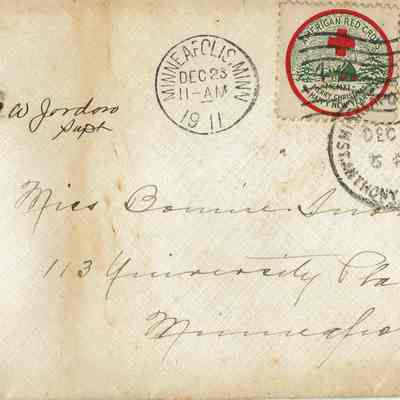 MINNEAPOLIS, MINN.
DEC 23
11-AM
1911
AMERICAN RED CROSS
MERRY CHRISTMAS
HAPPY NEW YEAR
DEC
ST. ANTHONY
W Jordan
Supt
Miss Bonnie
113 University Pla
Minneapo